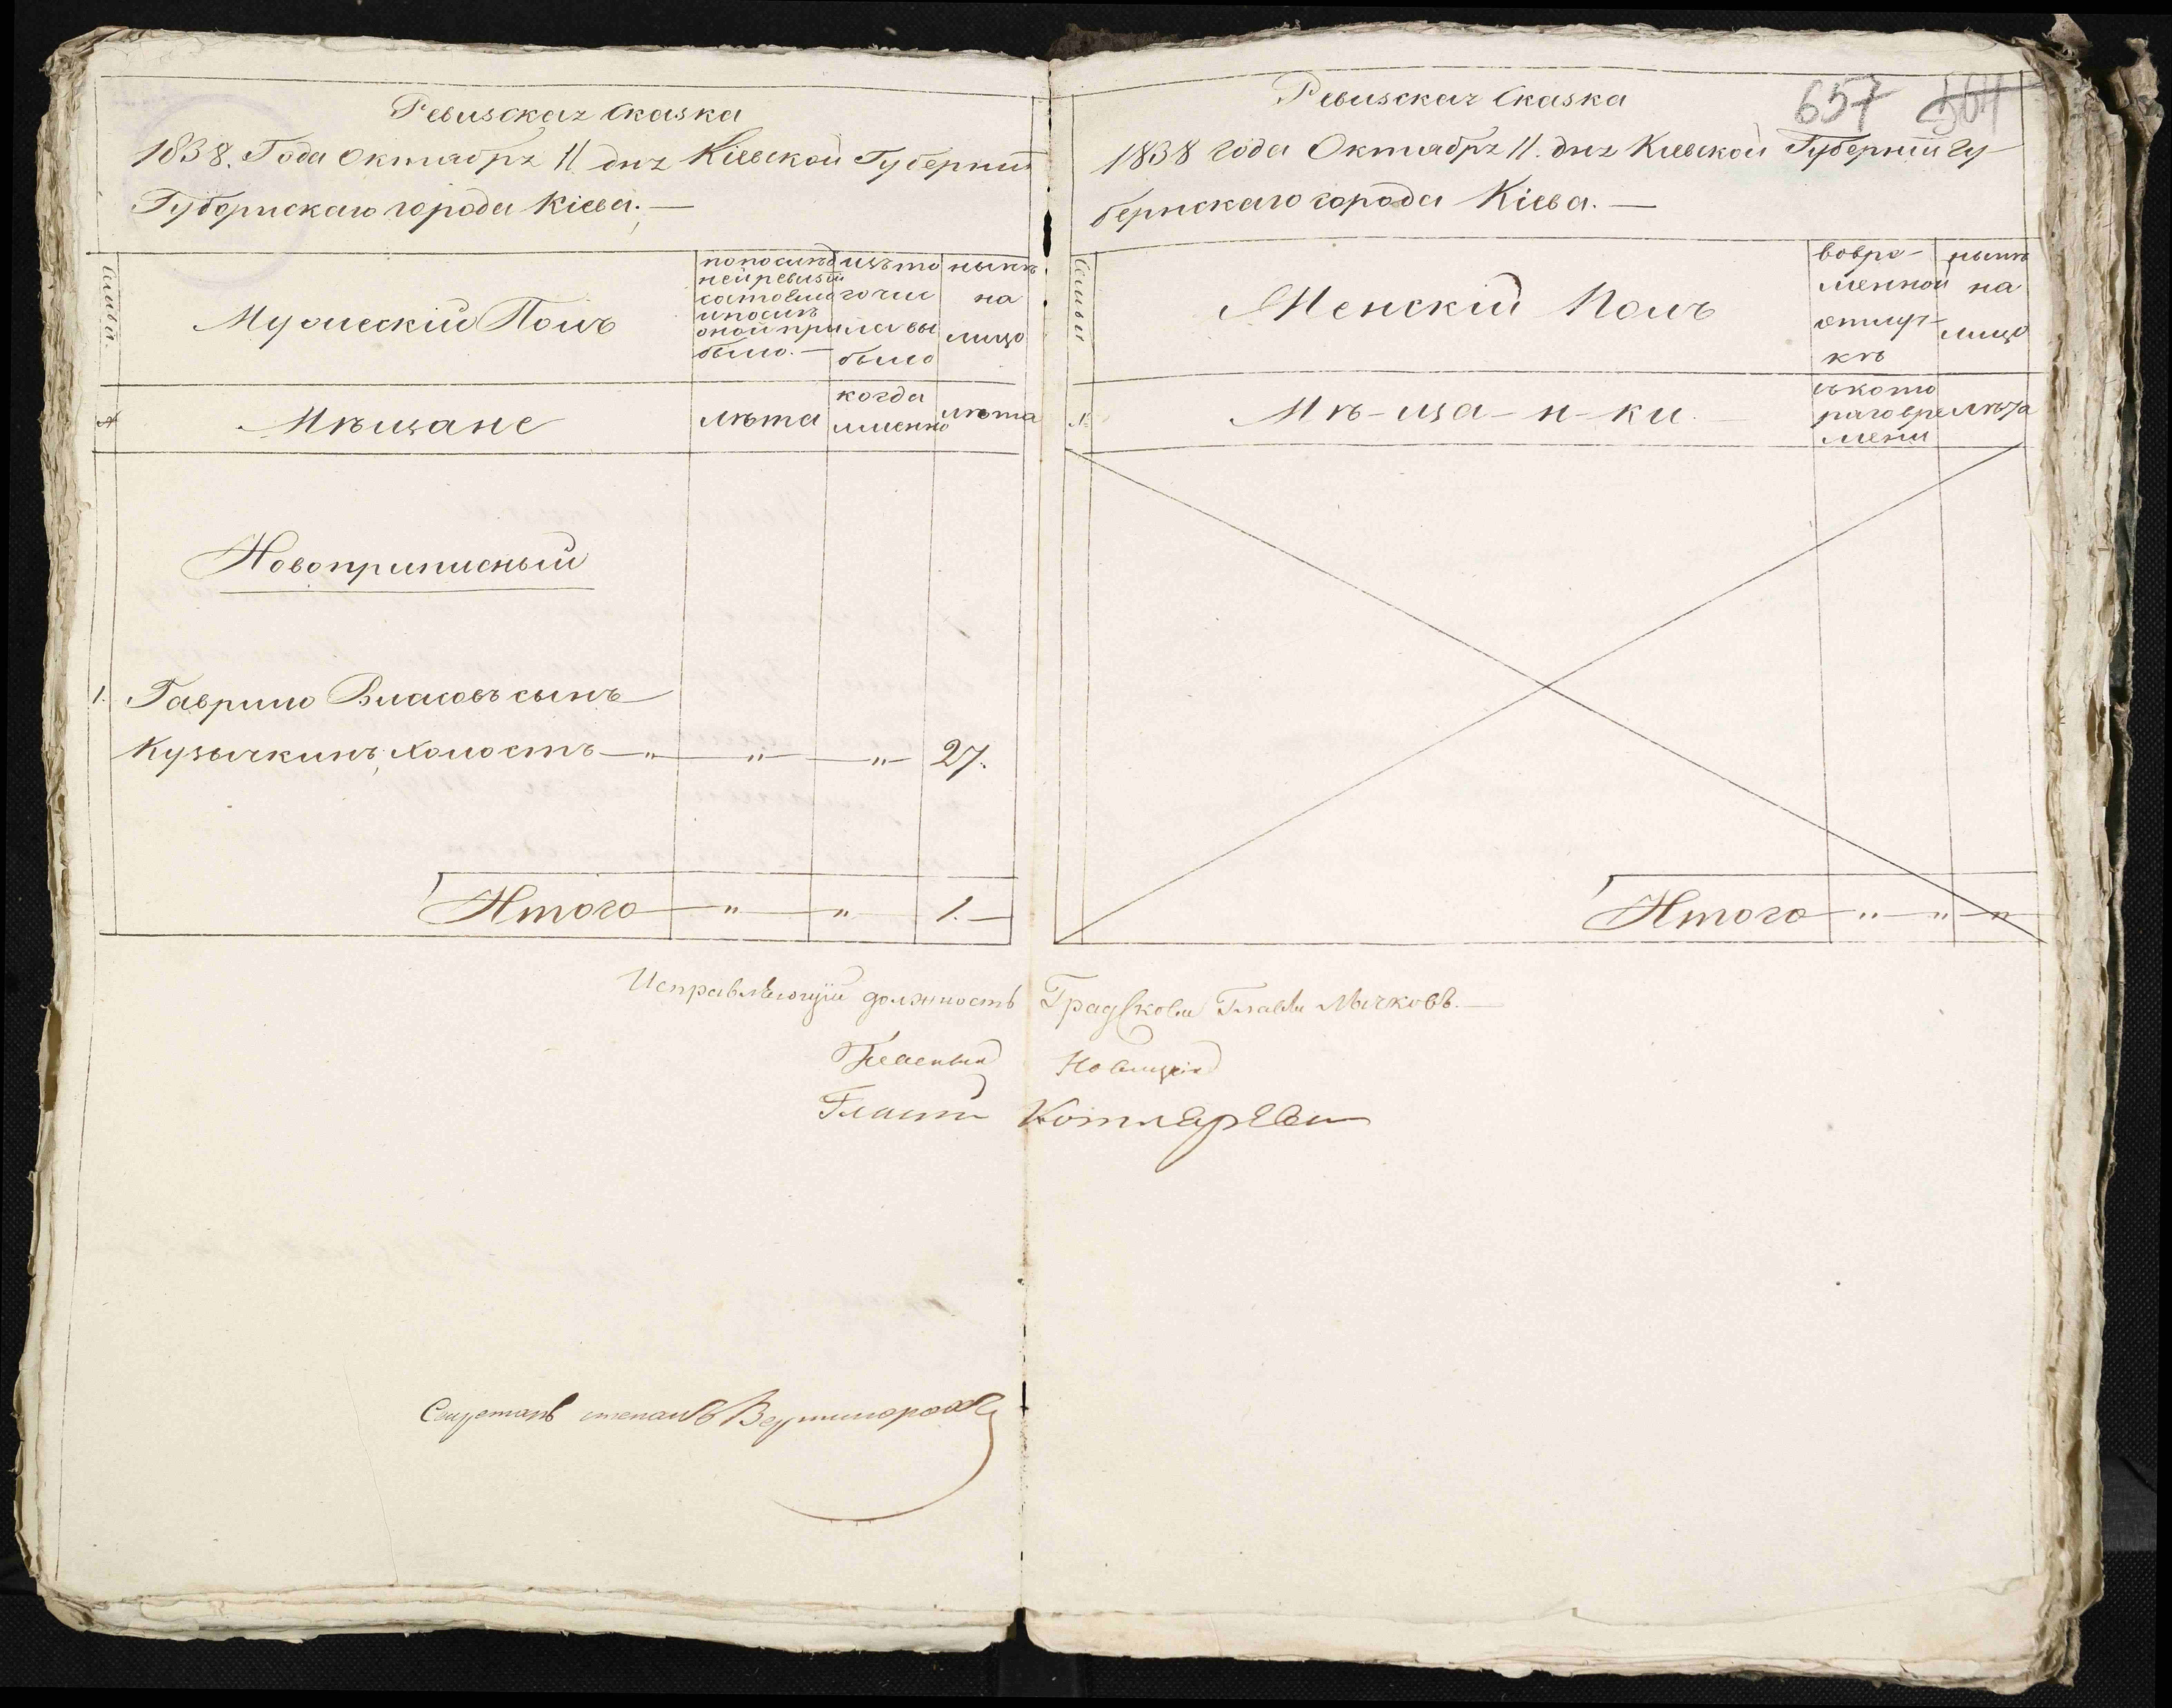 Ревизская Сказка
1838. Года Октября 11 дня Кіевской Губерніи
Губернскаго города Кіева. —
Семьи
Мужескій Полъ
по последней ревизіи состояло и после оной прибыло. —
изъ того числа выбыло
нынѣ на лицо
№
Мѣщане
лѣта
когда именно
лѣта
Новоприписный
1. Гаврило Власовъ сынъ
Кузычкинъ, холостъ — „ — „ — „ — 27.
Итого — „ — „ — 1. —
657 564
Ревизская Сказка
1838 года Октября 11. дня Кіевской Губерніи Гу
бернскаго города Кіева. —
Семьи
Женскій Полъ
вовре-
менной
отлуч-
кѣ
нынѣ
на
лицо
№
Мѣ-ща-н-ки. —
съ кото
раго вре
мени
лѣта
Итого — „ — „ — „
Исправляющій должность Градской Главы Мычковъ. —
Гласный Новицкій
Гласный Котляревъ
степанъ